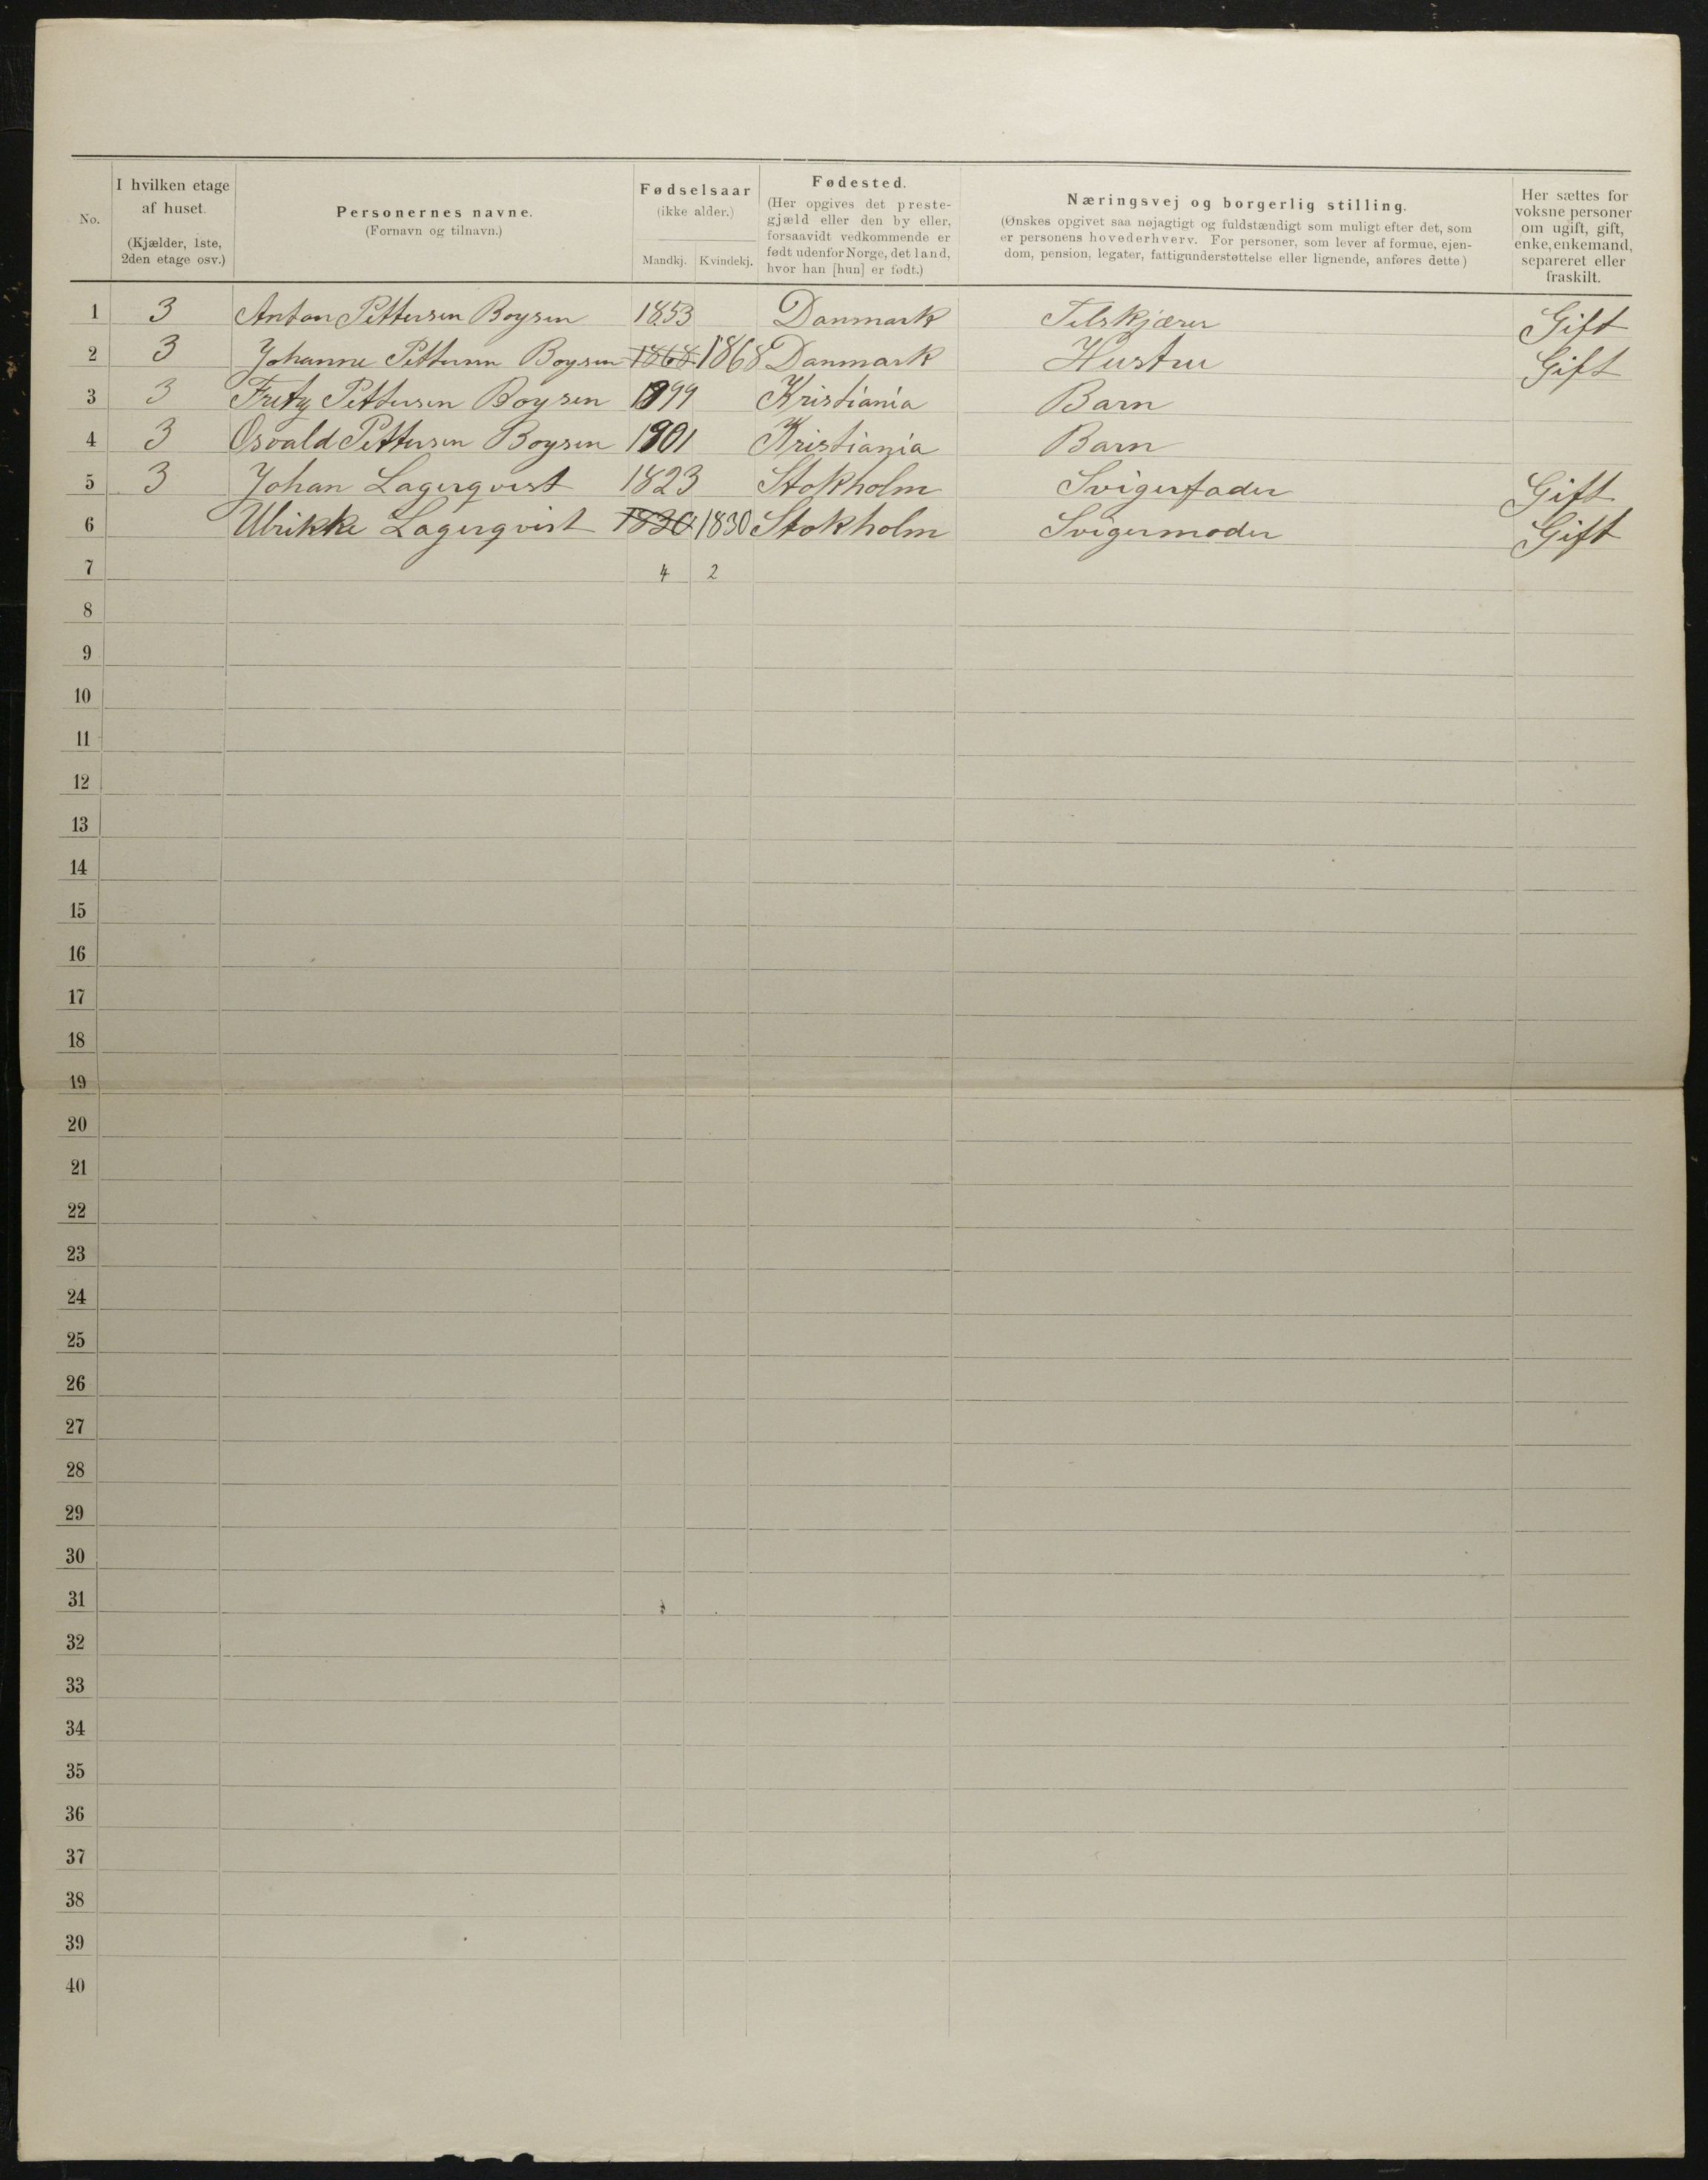 No. | I hvilken etage af huset. (Kjælder, 1ste, 2den etage osv.) | Personernes navne. (Fornavn og tilnavn.) | Fødselsaar (ikke alder.) Mandkj. Kvindekj. | Fødested. (Her opgives det prestegjæld eller den by eller, forsaavidt vedkommende er født udenfor Norge, det land, hvor han [hun] er født.) | Næringsvej og borgerlig stilling. (Ønskes opgivet saa nøjagtigt og fuldstændigt som muligt efter det, som er personens hovederhverv. For personer, som lever af formue, ejendom, pension, legater, fattigunderstøttelse eller lignende, anføres dette) | Her sættes for voksne personer om ugift, gift, enke, enkemand, separeret eller fraskilt.
1 3 Anton Pettersen Boysen 1853 Danmark Tilskjærer Gift
2 3 Johanne Pettersen Boysen 1868 1868 Danmark Hustru Gift
3 3 Fritz Pettersen Boysen 1899 Kristiania Barn
4 3 Osvald Pettersen Boysen 1901 Kristiania Barn
5 3 Johan Lagerqvist 1823 Stokholm Svigerfader Gift
6 Ulrikke Lagerqvist 1830 1830 Stokholm Svigermoder Gift
7 4 2
8
9
10
11
12
13
14
15
16
17
18
19
20
21
22
23
24
25
26
27
28
29
30
31
32
33
34
35
36
37
38
39
40